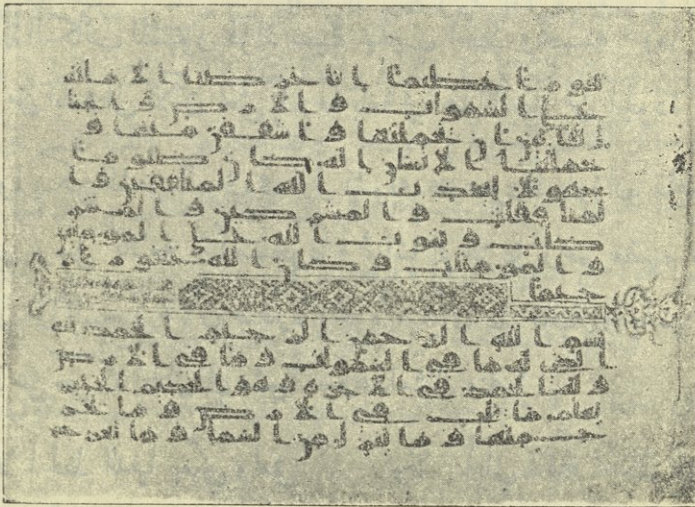 فوزا عظيما انا عرضنا الامانة
على السموت والارض والجبا
ل فابين ان يحملنها واشفقن منها و
حملها الانسن انه كان ظلوما
جهولا ليعذب الله المنفقين وا
لمنفقت والمشركين والمشر
كت ويتوب الله على المومنين
والمومنت وكان الله غفورا ر
حيما
بسم الله الرحمن الرحيم الحمد لله
الذي له ما في السموت وما في الارض
وله الحمد في الاخرة وهو الحكيم الخبير
يعلم ما يلج في الارض وما يخر
ج منها وما ينزل من السما وما يعرج